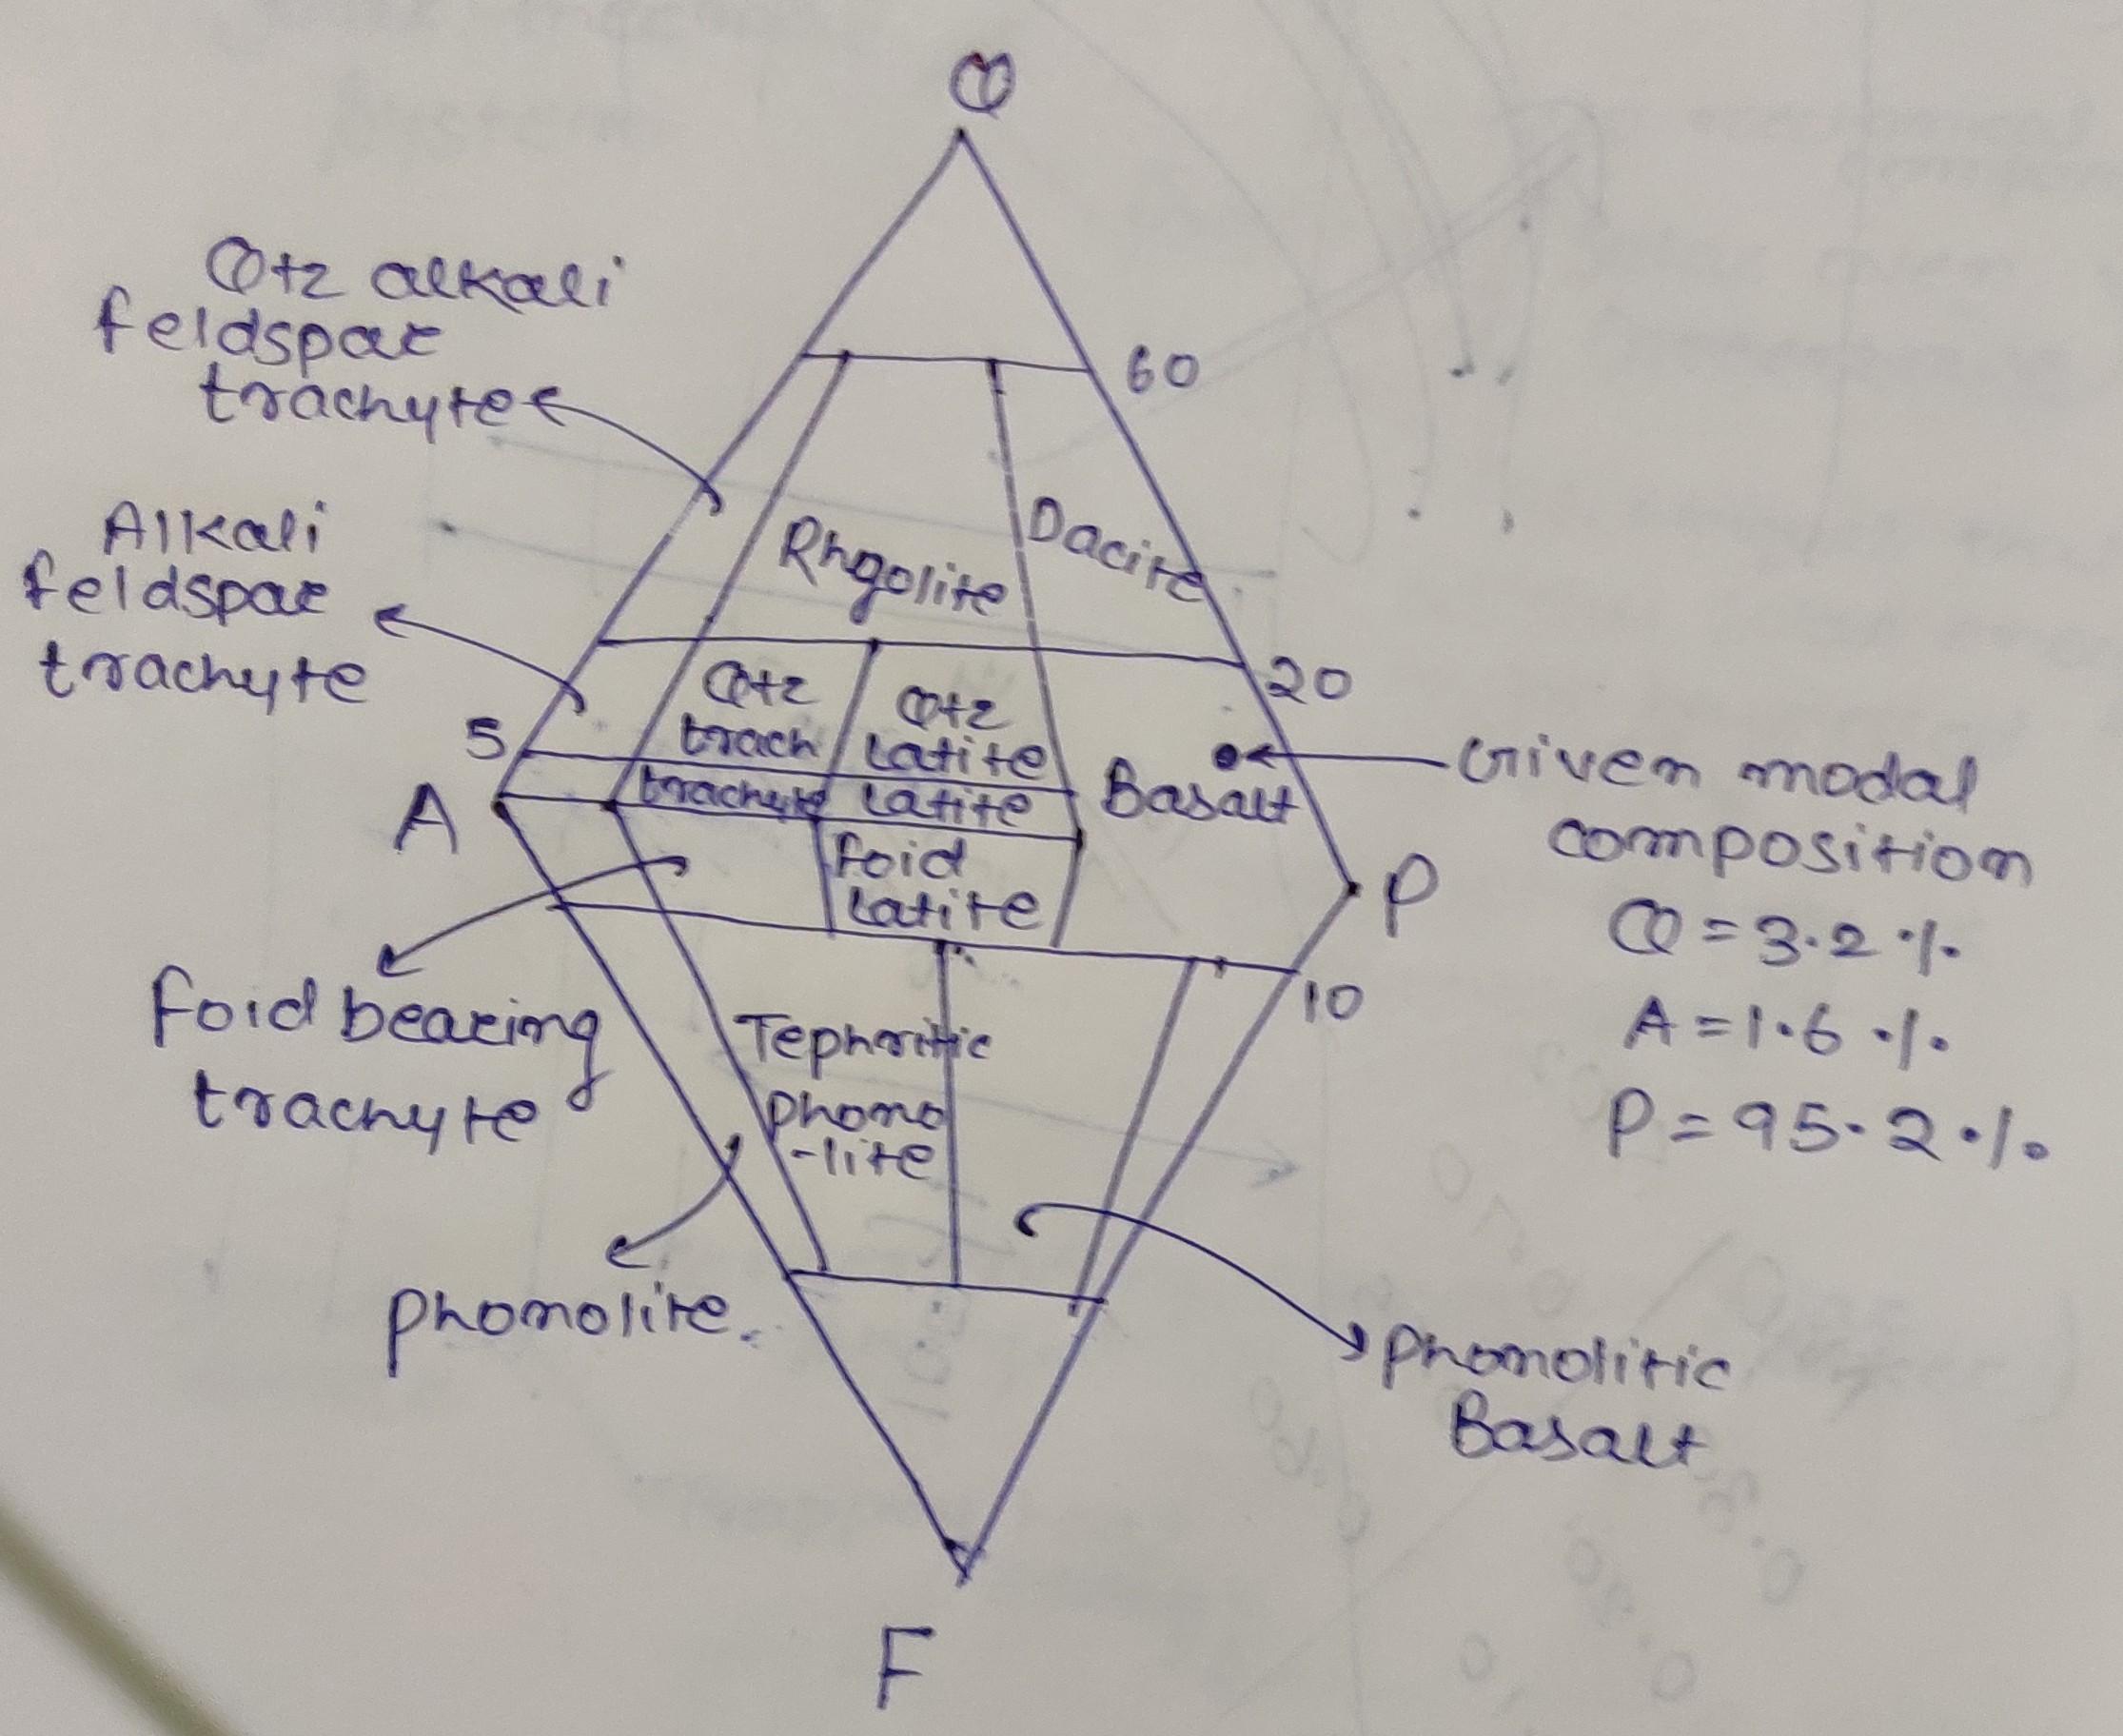 Q
Qtz alkali
feldspar
trachyte
60
Alkali
feldspar
trachyte
Rhyolite
Dacite
20
Qtz
trach
Qtz
latite
5
trachyte
latite
Basalt
Given modal
composition
Q = 3.2 %.
A = 1.6 %.
P = 95.2 %.
A
P
foid
latite
10
foid bearing
trachyte
Tephritic
phono
-lite
phonolite.
phonolitic
Basalt
F